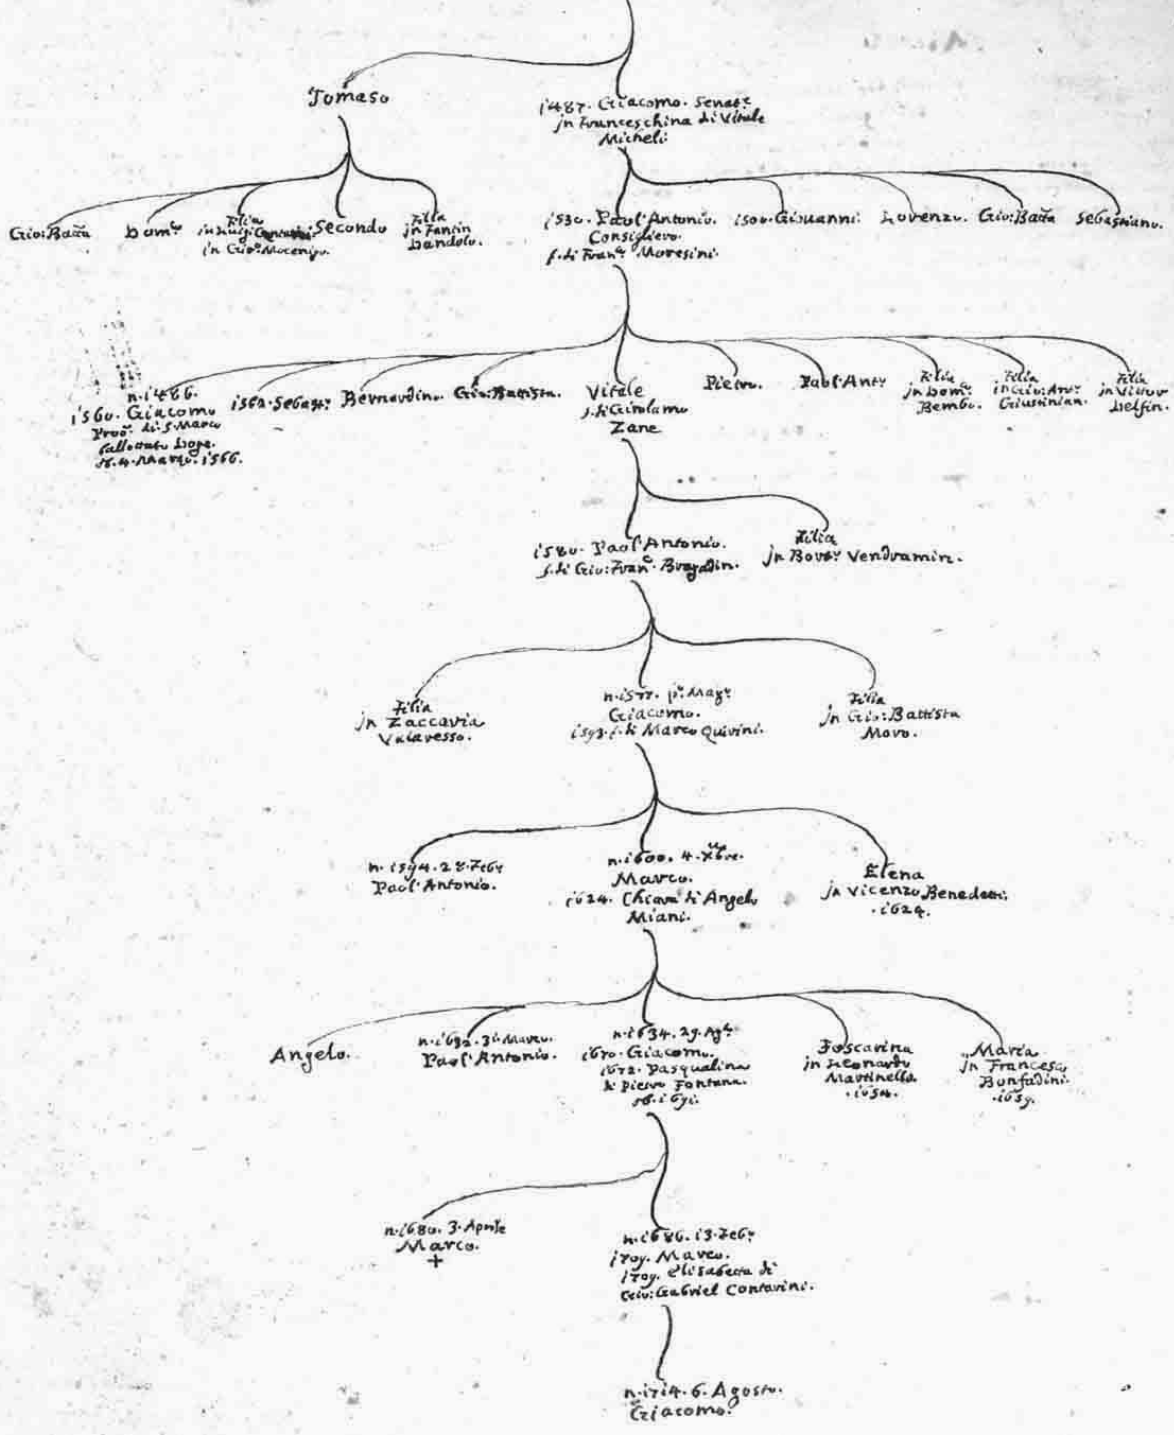 Tomaso
1487. Giacomo. Senat.r
jn Franceschina di Vitale
Micheli
Gio: Batta
Dom.co
Filia
in Luigi Contarini
in Gio: Mocenigo.
Secondo
Filia
jn Fantin
Dandolo.
1530. Paol' Antonio.
Consigliero.
f. di Fran.co Moresini.
1500. Giovanni.
Lorenzo.
Gio: Batta
Sebastiano.
n. 1486.
1560. Giacomo
Proc.r di S. Marco
ballottato Doge.
4. Marzo. 1566.
1562. Sebast.n
Bernardino.
Gio: Battista.
Vitale
f. di Girolamo
Zane
Pietro.
Paol' Ant.o
Filia
jn Dom.co
Bembo.
Filia
in Gio: Ant.o
Giustinian.
Filia
jn Vittor
Delfin.
1580. Paol' Antonio.
f. di Gio: Fran.c Bragadin.
Filia
jn Bort.o Vendramin.
Filia
jn Zaccaria
Valaresso.
n. 1577. p.o Mag.o
Giacomo.
1593. f. di Marco Quirini.
Filia
jn Gio: Battista
Moro.
n. 1594. 28. Feb.r
Paol' Antonio.
n. 1600. 4. Xbre.
Marco.
1624. Chiara di Angelo
Miani.
Elena
jn Vicenzo Benedetti.
.1624.
Angelo.
n. 1632. 31. Marzo.
Paol' Antonio.
n. 1634. 29. Ag.o
1670. Giacomo.
1672. Pasqualina
di Pietro Fontana.
1691.
Foscarina
jn Leonardo
Martinello
.1654.
Maria
jn Francesco
Bonfadini.
.1659.
n. 1680. 3. Aprile
Marco.
+
n. 1686. 13. Feb.r
1709. Marco.
1709. Elisabetta di
Gio: Gabriel Contarini.
n. 1714. 6. Agosto.
Giacomo.